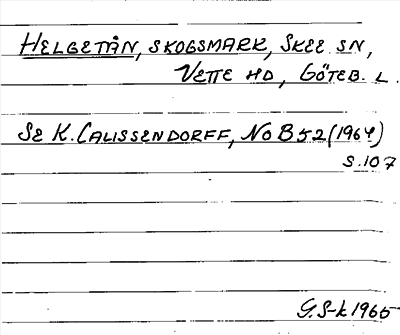 HELGETÅN, SKOGSMARK, SKEE SN,
VETTE HD, GÖTEB. L.
SE K. CALISSENDORFF, NOB 52 (1964)
S. 107
G. S-k 1965